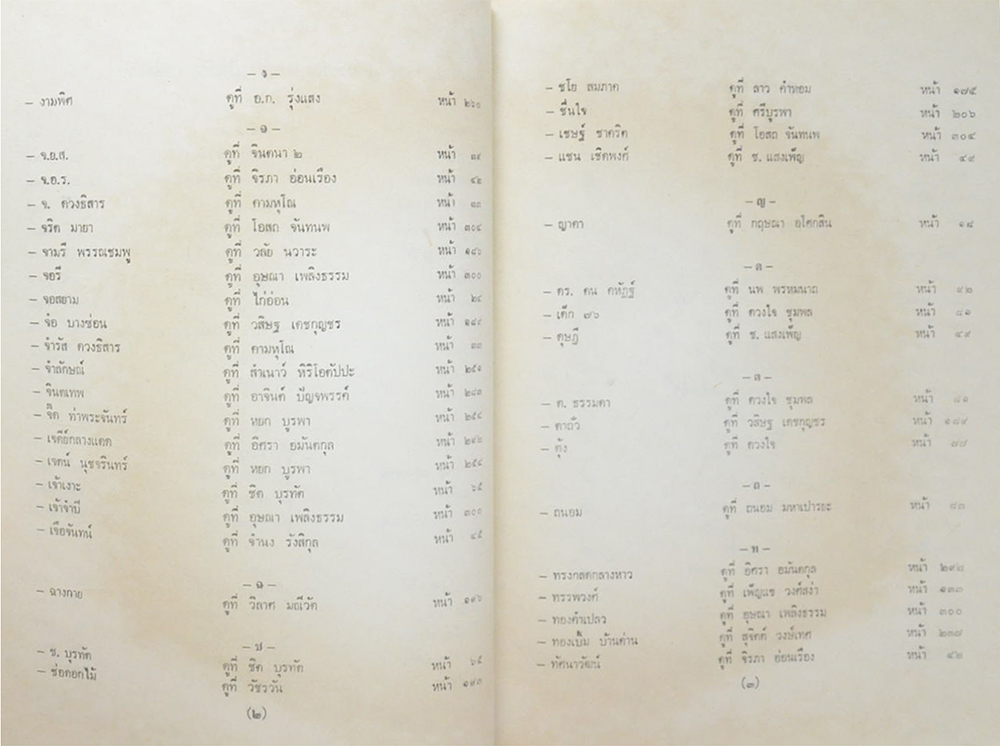 - ง -
- งามพิศ ดูที่ อ.ก. รุ่งแสง หน้า ๒๖๐
- จ -
- จ.ย.ส. ดูที่ จินตนา ๒ หน้า ๓๙
- จ.อ.ร. ดูที่ จิรภา อ่อนเรือง หน้า ๔๒
- จ. ดวงธิสาร ดูที่ ดามหุโณ หน้า ๓๓
- จริต มายา ดูที่ โอสถ จันทนพ หน้า ๓๐๔
- จามรี พรรณชมพู ดูที่ วลัย นวาระ หน้า ๑๘๖
- จอรี ดูที่ อุษณา เพลิงธรรม หน้า ๓๐๐
- จอสยาม ดูที่ ไก่อ่อน หน้า ๒๔
- จ้อ บางซ่อน ดูที่ วสิษฐ เดชกุญชร หน้า ๑๘๙
- จำรัส ดวงธิสาร ดูที่ ดามหุโณ หน้า ๓๓
- จำลักษณ์ ดูที่ สำเนาว์ หิริโอตัปปะ หน้า ๒๕๑
- จินตเทพ ดูที่ อาจินต์ ปัญจพรรค์ หน้า ๒๘๓
- จิ๊ด ท่าพระจันทร์ ดูที่ หยก บูรพา หน้า ๒๕๔
- เจดีย์กลางแดด ดูที่ อิศรา อมันตกุล หน้า ๒๙๒
- เจตน์ นุชจรินทร์ ดูที่ หยก บูรพา หน้า ๒๕๔
- เจ้าเงาะ ดูที่ ชิต บุรทัต หน้า ๖๕
- เจ้าจำปี ดูที่ อุษณา เพลิงธรรม หน้า ๓๐๐
- เจือจันทน์ ดูที่ จำนง รังสิกุล หน้า ๔๕
- ฉ -
- ฉางกาย ดูที่ วิลาศ มณีวัต หน้า ๑๙๖
- ช -
- ช. บุรทัต ดูที่ ชิต บุรทัต หน้า ๖๕
- ช่อดอกไม้ ดูที่ วัชรวัน หน้า ๑๙๓
(๒)
- ชโย สมภาค ดูที่ ลาว คำหอม หน้า ๑๗๕
- ชื่นใจ ดูที่ ศรีบูรพา หน้า ๒๐๖
- เชษฐ์ ชาคริต ดูที่ โอสถ จันทนพ หน้า ๓๐๔
- แชน เชิดพงศ์ ดูที่ ช. แสงเพ็ญ หน้า ๔๙
- ญ -
- ญาดา ดูที่ กฤษณา อโศกสิน หน้า ๑๘
- ด -
- ดร. ดน ดหัฏฐ์ ดูที่ นพ พรหมนาถ หน้า ๙๒
- เด็ก ๗๖ ดูที่ ดวงใจ ชุมพล หน้า ๘๑
- ดุษฎี ดูที่ ช. แสงเพ็ญ หน้า ๔๙
- ต -
- ต. ธรรมดา ดูที่ ดวงใจ ชุมพล หน้า ๘๑
- ตาถัว ดูที่ วสิษฐ เดชกุญชร หน้า ๑๘๙
- ตุ้ง ดูที่ ดวงใจ หน้า ๗๗
- ถ -
- ถนอม ดูที่ ถนอม มหาเปารยะ หน้า ๘๓
- ท -
- ทรงกลดกลางหาว ดูที่ อิศรา อมันตกุล หน้า ๒๙๒
- ทรรพวงค์ ดูที่ เพ็ญแข วงศ์สง่า หน้า ๑๓๓
- ทองคำเปลว ดูที่ อุษณา เพลิงธรรม หน้า ๓๐๐
- ทองเบิ้ม บ้านด่าน ดูที่ สุจิตต์ วงษ์เทศ หน้า ๒๓๗
- ทัศนาวัฒน์ ดูที่ จิรภา อ่อนเรือง หน้า ๔๒
(๓)